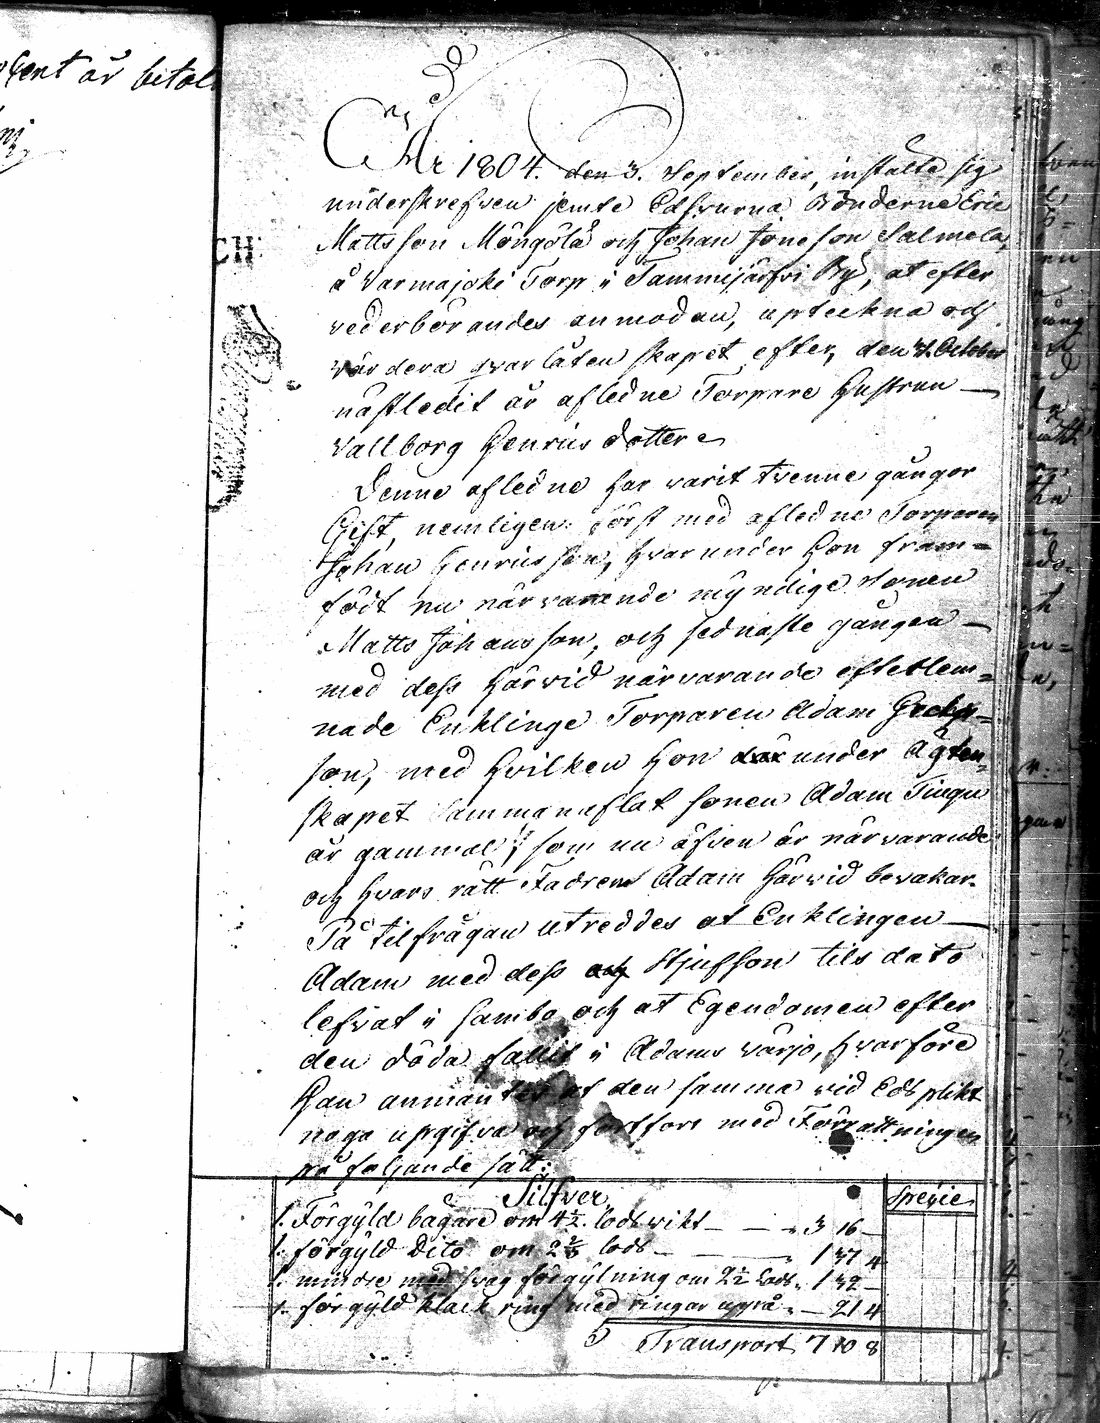 Cent är betal
CH
År 1804. den 3. September, instälte sig
underskrefven jemte Edsvurna Bönderne Eric
Mattsson Mångölä och Johan Jöneson Salmela,
å Varmajoki Torp i Tammijärfvi By, at efter
vederbörandes anmodan, upteckna och
värdera qvarlåtenskapet efter, den October
nästledit år afledne Torpare Hustrun —
Vallborg Henrics dotter
Denne afledne har varit tvenne gångor
Gift, nemligen: först med afledne Torparen
Johan Henricsson, hvarunder hon fram=
födt nu närvarande myndige Sonen
Matts Johansson, och sednaste gången —
med dess härvid närvarande efterlem=
nade Enklinge Torparen Adam
son, med hvilken hon under Ägten=
skapet Sammanaflat sonen Adam Tiugu
år gammal, som nu äfven är närvarande
och hvars rätt Fadren Adam härvid bevakar.
På tilfrågan utreddes at Enklingen —
Adam med dess Stjufson tils dato
lefvat i sambo och at Egendomen efter
den döda fallit i Adams värjo, hvarföre
han anmantes at den samma vid Edsplikt
noga upgifva och fortfors med Förrättningen
på följande sätt:
Silfver Specie
1. Förgyld bägare om 4½ lods vikt — 3 16 —
1. förgyld Dito om 2⅔ lod — 1 37 4
1. mindre med svag förgylning om 2½ lod 1 32 —
1. förgyld klack ring med ringar uppå — 21 4
Transport 7 10 8